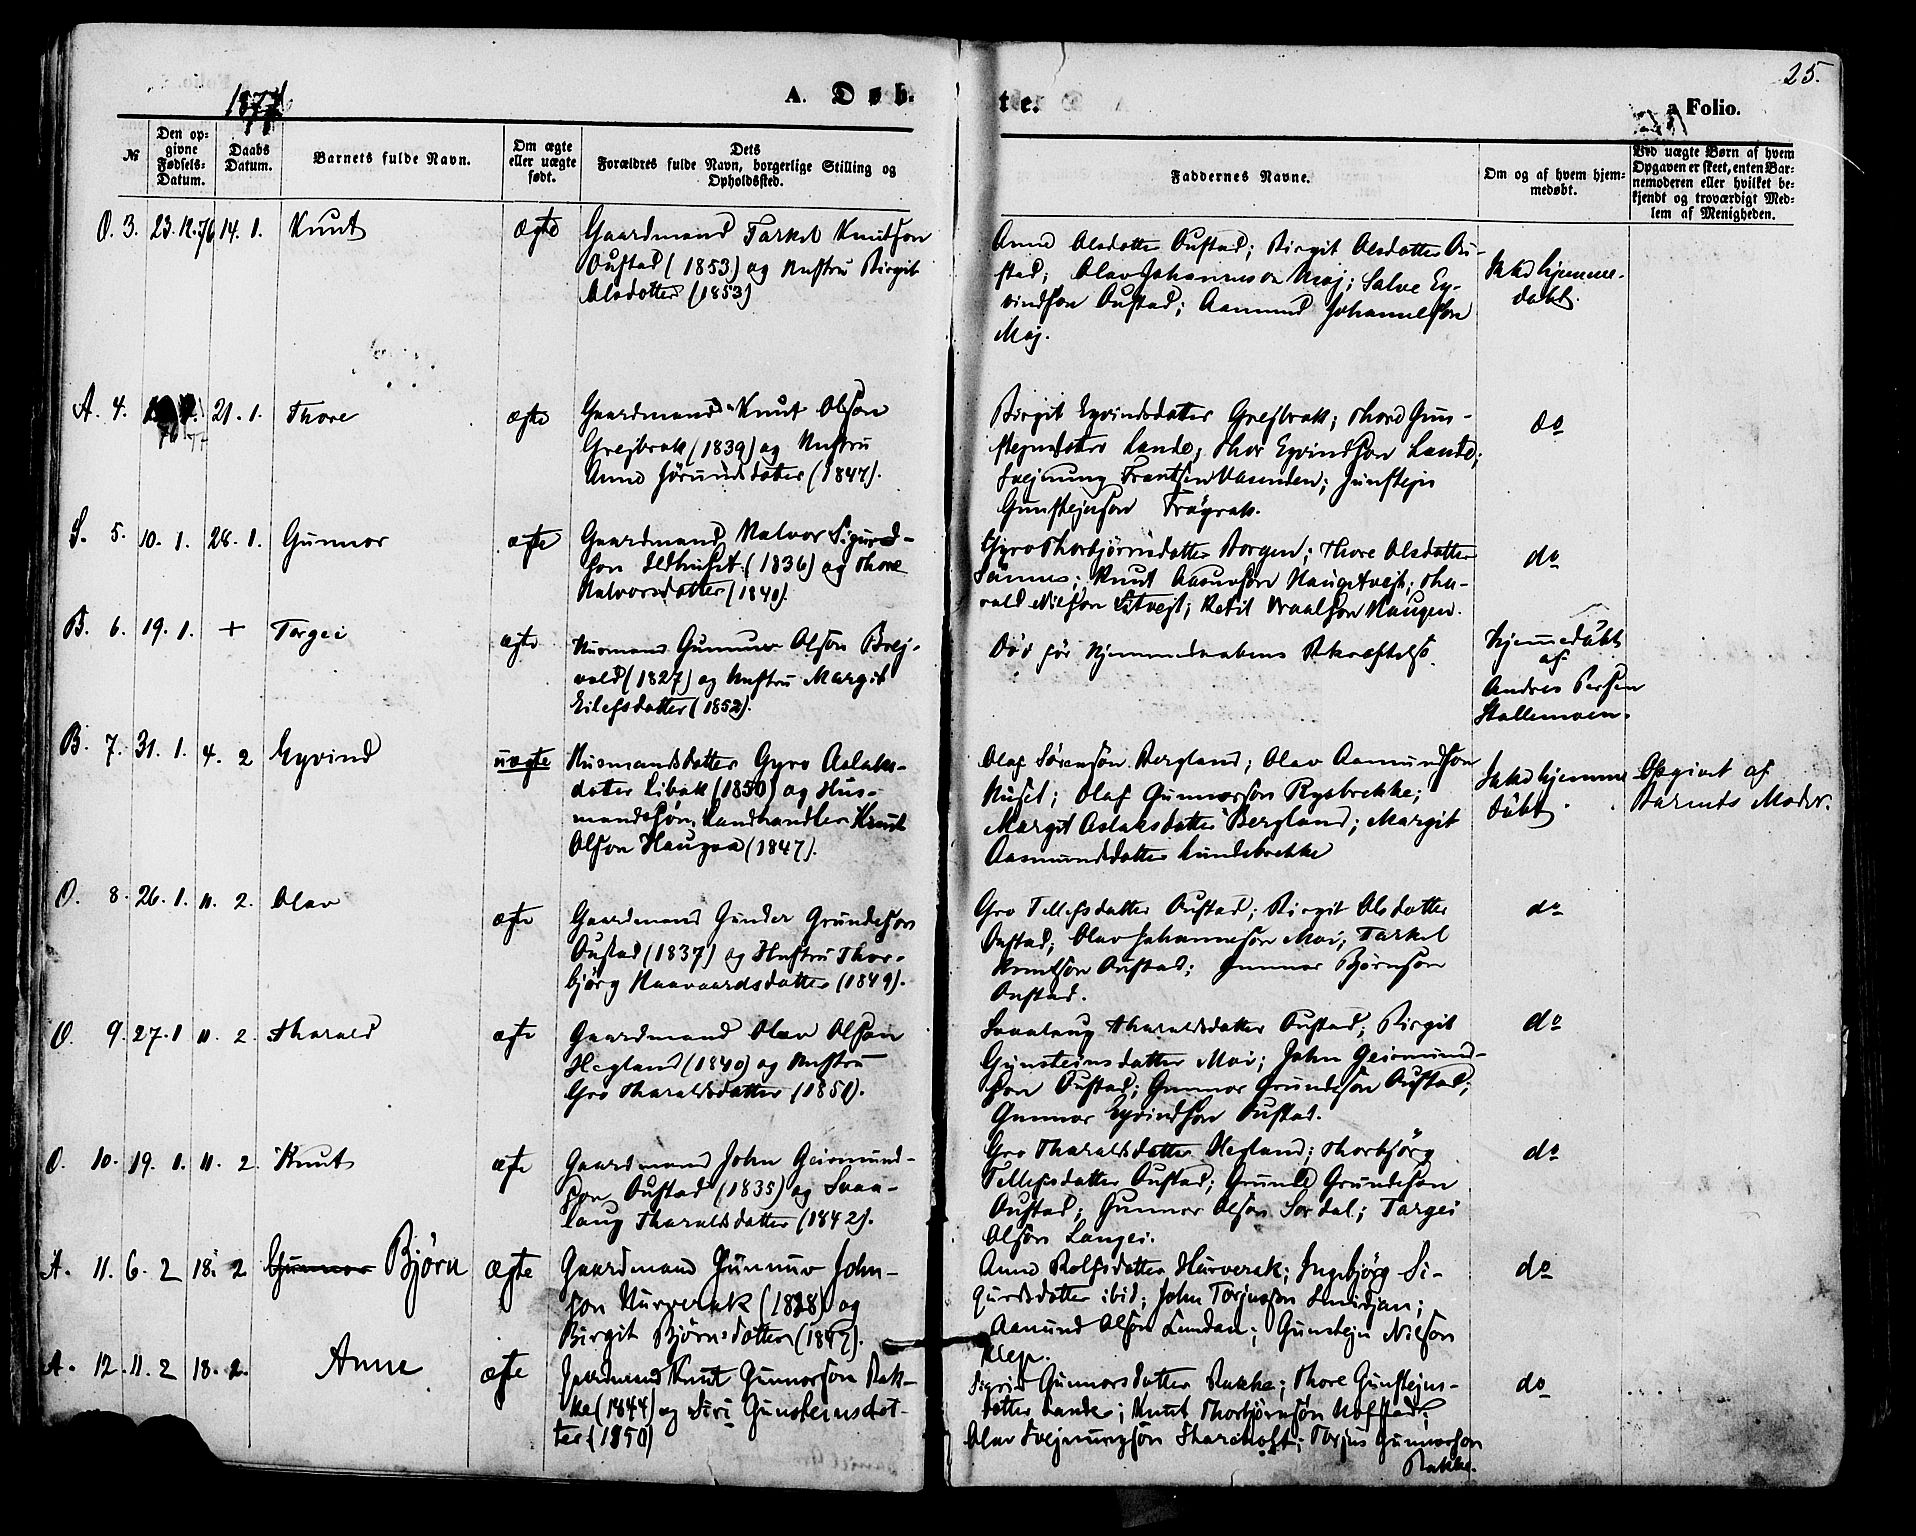 1877
A. Døb-
te.
25.
a Folio.
№
Den op-
givne
Fødsels-
Datum.
Daabs
Datum.
Barnets fulde Navn.
Om ægte
eller uægte
født.
Dets
Forældres fulde Navn, borgerlige Stilling og
Opholdssted.
Faddernes Navne.
Om og af hvem hjem-
medøbt.
Ved uægte Børn af hvem
Opgaven er skeet, enten Bar-
nemoderen eller hvilket be-
kjendt og troværdigt Med-
lem af Menigheden.
O. 3. 23.12.76 14. 1. Knut ægte
Gaardmand Tarkel Knutson
Oustad (1853) og Hustru Birgit
Olsdotter (1853)
Anne Olsdotter Oustad; Birgit Olsdotter Ou-
stad; Olav Johanneson Moj; Salve Ey-
vindson Oustad; Aamund Johannesson
Moj.
Ikke hjemme-
døbt.
A. 4. 21. 1. Thore ægte
Gaardmand Knut Olson
Grejbrok (1839) og Hustru
Anne Jørundsdatter (1847).
Birgit Eyvindsdatter Grejbrok; Thore Gun-
stejnsdotter Lande; Thor Eyvindson Lande;
Svejnung Frantsen Vasenden; Gunstejn
Gunstejnson
do
S. 5. 10. 1. 28. 1. Gunnar ægte
Gaardmand Halvor Sigurd-
son Ildhuset (1836) og Thore
Halvorsdotter (1840).
Gyro Thorbjørnsdatter Borgen; Thore Olsdotter
Sønnes; Knut Aasuvson Haugetvejt; Tha-
rald Nilson Litvejt; Ketil Vraalson Haugen.
do
B. 6. 19. 1. + Torgei ægte
Husmand Gunnuv Olson Brej-
vold (1827) og Hustru Margit
Eilefsdotter (1852).
Død før Hjemmedaabens Bekræftelse.
Hjemmedøbt
af
Andres Persen
Stallemoen.
B. 7. 31. 1. 4. 2 Eyvind uægte
Husmandsdatter Gyro Aslaks-
datter Libok (1850) og Hus-
mandssøn, Landhandler Knut
Olson Haugaa (1847).
Olaf Sørenson Bergland; Olav Aamundson
Huset; Olaf Gunnarson Rysbrekke;
Margit Aslaksdatter Bergland; Margit
Aasmundsdatter Lundebrekke
Ikke hjemme
døbt.
Opgivet af
Barnets Moder.
O. 8. 26. 1. 11. 2. Olav ægte
Gaardmand Gunder Grundeson
Oustad (1837) og Hustru Thor-
bjørg Haavaardsdatter (1849).
Gro Tellefsdatter Oustad; Birgit Olsdatter
Oustad; Olav Johanneson Moi; Tarkel
Knutson Oustad; Gunnar Bjørnson
Oustad.
do
O. 9. 27. 1 11. 2. Tharald ægte
Gaardmand Olav Olson
Hegland (1840) og Hustru
Gro Tharaldsdatter (1851).
Svaalaug Tharaldsdatter Oustad; Birgit
Gunsteinsdatter Moi; John Geirmund-
son Oustad; Gunnar Grundeson Oustad;
Gunnar Eyvindson Oustad.
do
O. 10. 19. 1. 11. 2. Knut ægte
Gaardmand John Geirmund-
son Oustad (1835) og Svaa-
laug Tharaldsdatter (1842).
Gro Tharaldsdatter Hegland; Thorbjørg
Tellefsdatter Oustad; Grunde Grundeson
Oustad; Gunnar Olson Sordal; Targei
Olson Langei.
do
A. 11. 6. 2 18. 2 Gunnar Bjørn ægte
Gaardmand Gunnuv John-
son Hurverak (1828) og
Birgit Bjørnsdatter (1842).
Anne Rolfsdatter Hurverak; Ingebjørg Si-
gurdsdatter ibid; John Torjusson Smidjan;
Aanund Olson Lundan; Gunstejn Nilson
Klep.
do
A. 12. 11. 2 18. 2. Anne ægte
Gaardmand Knut Gunnarson Rak-
ke (1844) og Siri Gunsteinsdot-
ter (1850)
Sigrid Gunnarsdatter Rakke; Thore Gunstejns-
datter Lande; Knut Thorbjørnson Hofstad;
Olav Svejnungson Tharaldsoft; Torjus Gunnarson
Rakke.
do